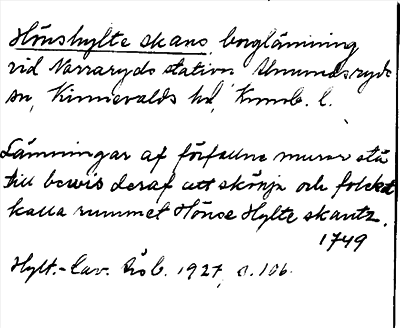 Hönshylte skans, borglämning
vid Norraryds station Almundsryds
sn, Kinnevalds hd, Kronb. l.
Lämningar af förfallne murar stå
till bewis deraf att skönja och folcket
kalla rummet Höns Hylte skantz.
1749
Hylt.-Cav. Årsb. 1927, s. 106.